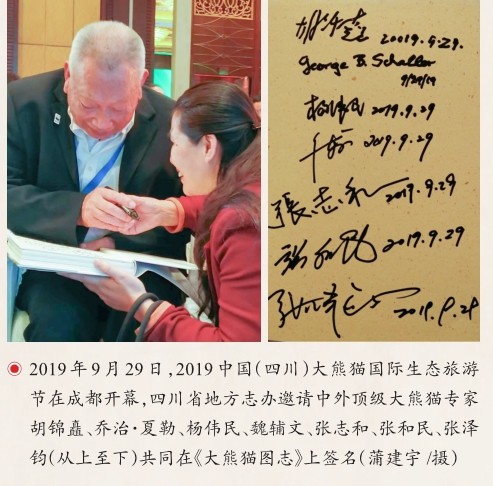 胡锦矗 20019.9.29.
George B. Schaller
9/29/19
杨伟民 2019.9.29
2019.9.29
張志和 2019.9.29
张和民 2019.9.29
2019.9.29
2019年9月29日,2019中国(四川)大熊猫国际生态旅游
节在成都开幕,四川省地方志办邀请中外顶级大熊猫专家
胡锦矗、乔治·夏勒、杨伟民、魏辅文、张志和、张和民、张泽
钧(从上至下)共同在《大熊猫图志》上签名(蒲建宇/摄)